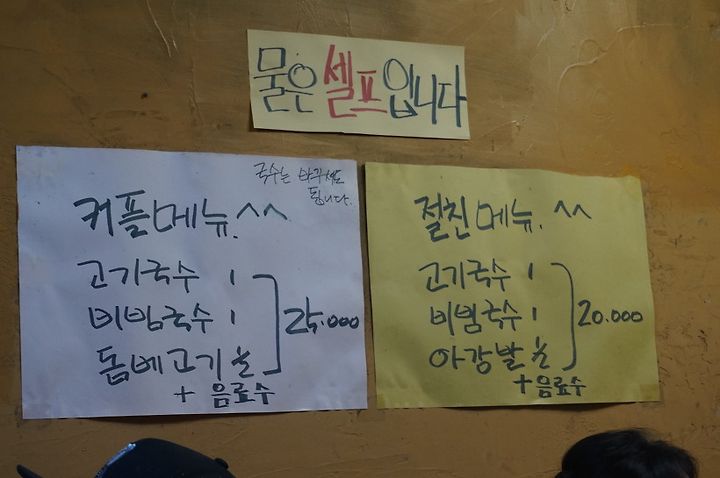 물은 셀프입니다
국수는 바꾸셔도
됩니다.
커플메뉴.^^
고기국수 1
비빔국수 1
돔베고기 ½
25.000
+ 음료수
절친메뉴. ^^
고기국수 1
비빔국수 1
아강발 ½
20.000
+음료수